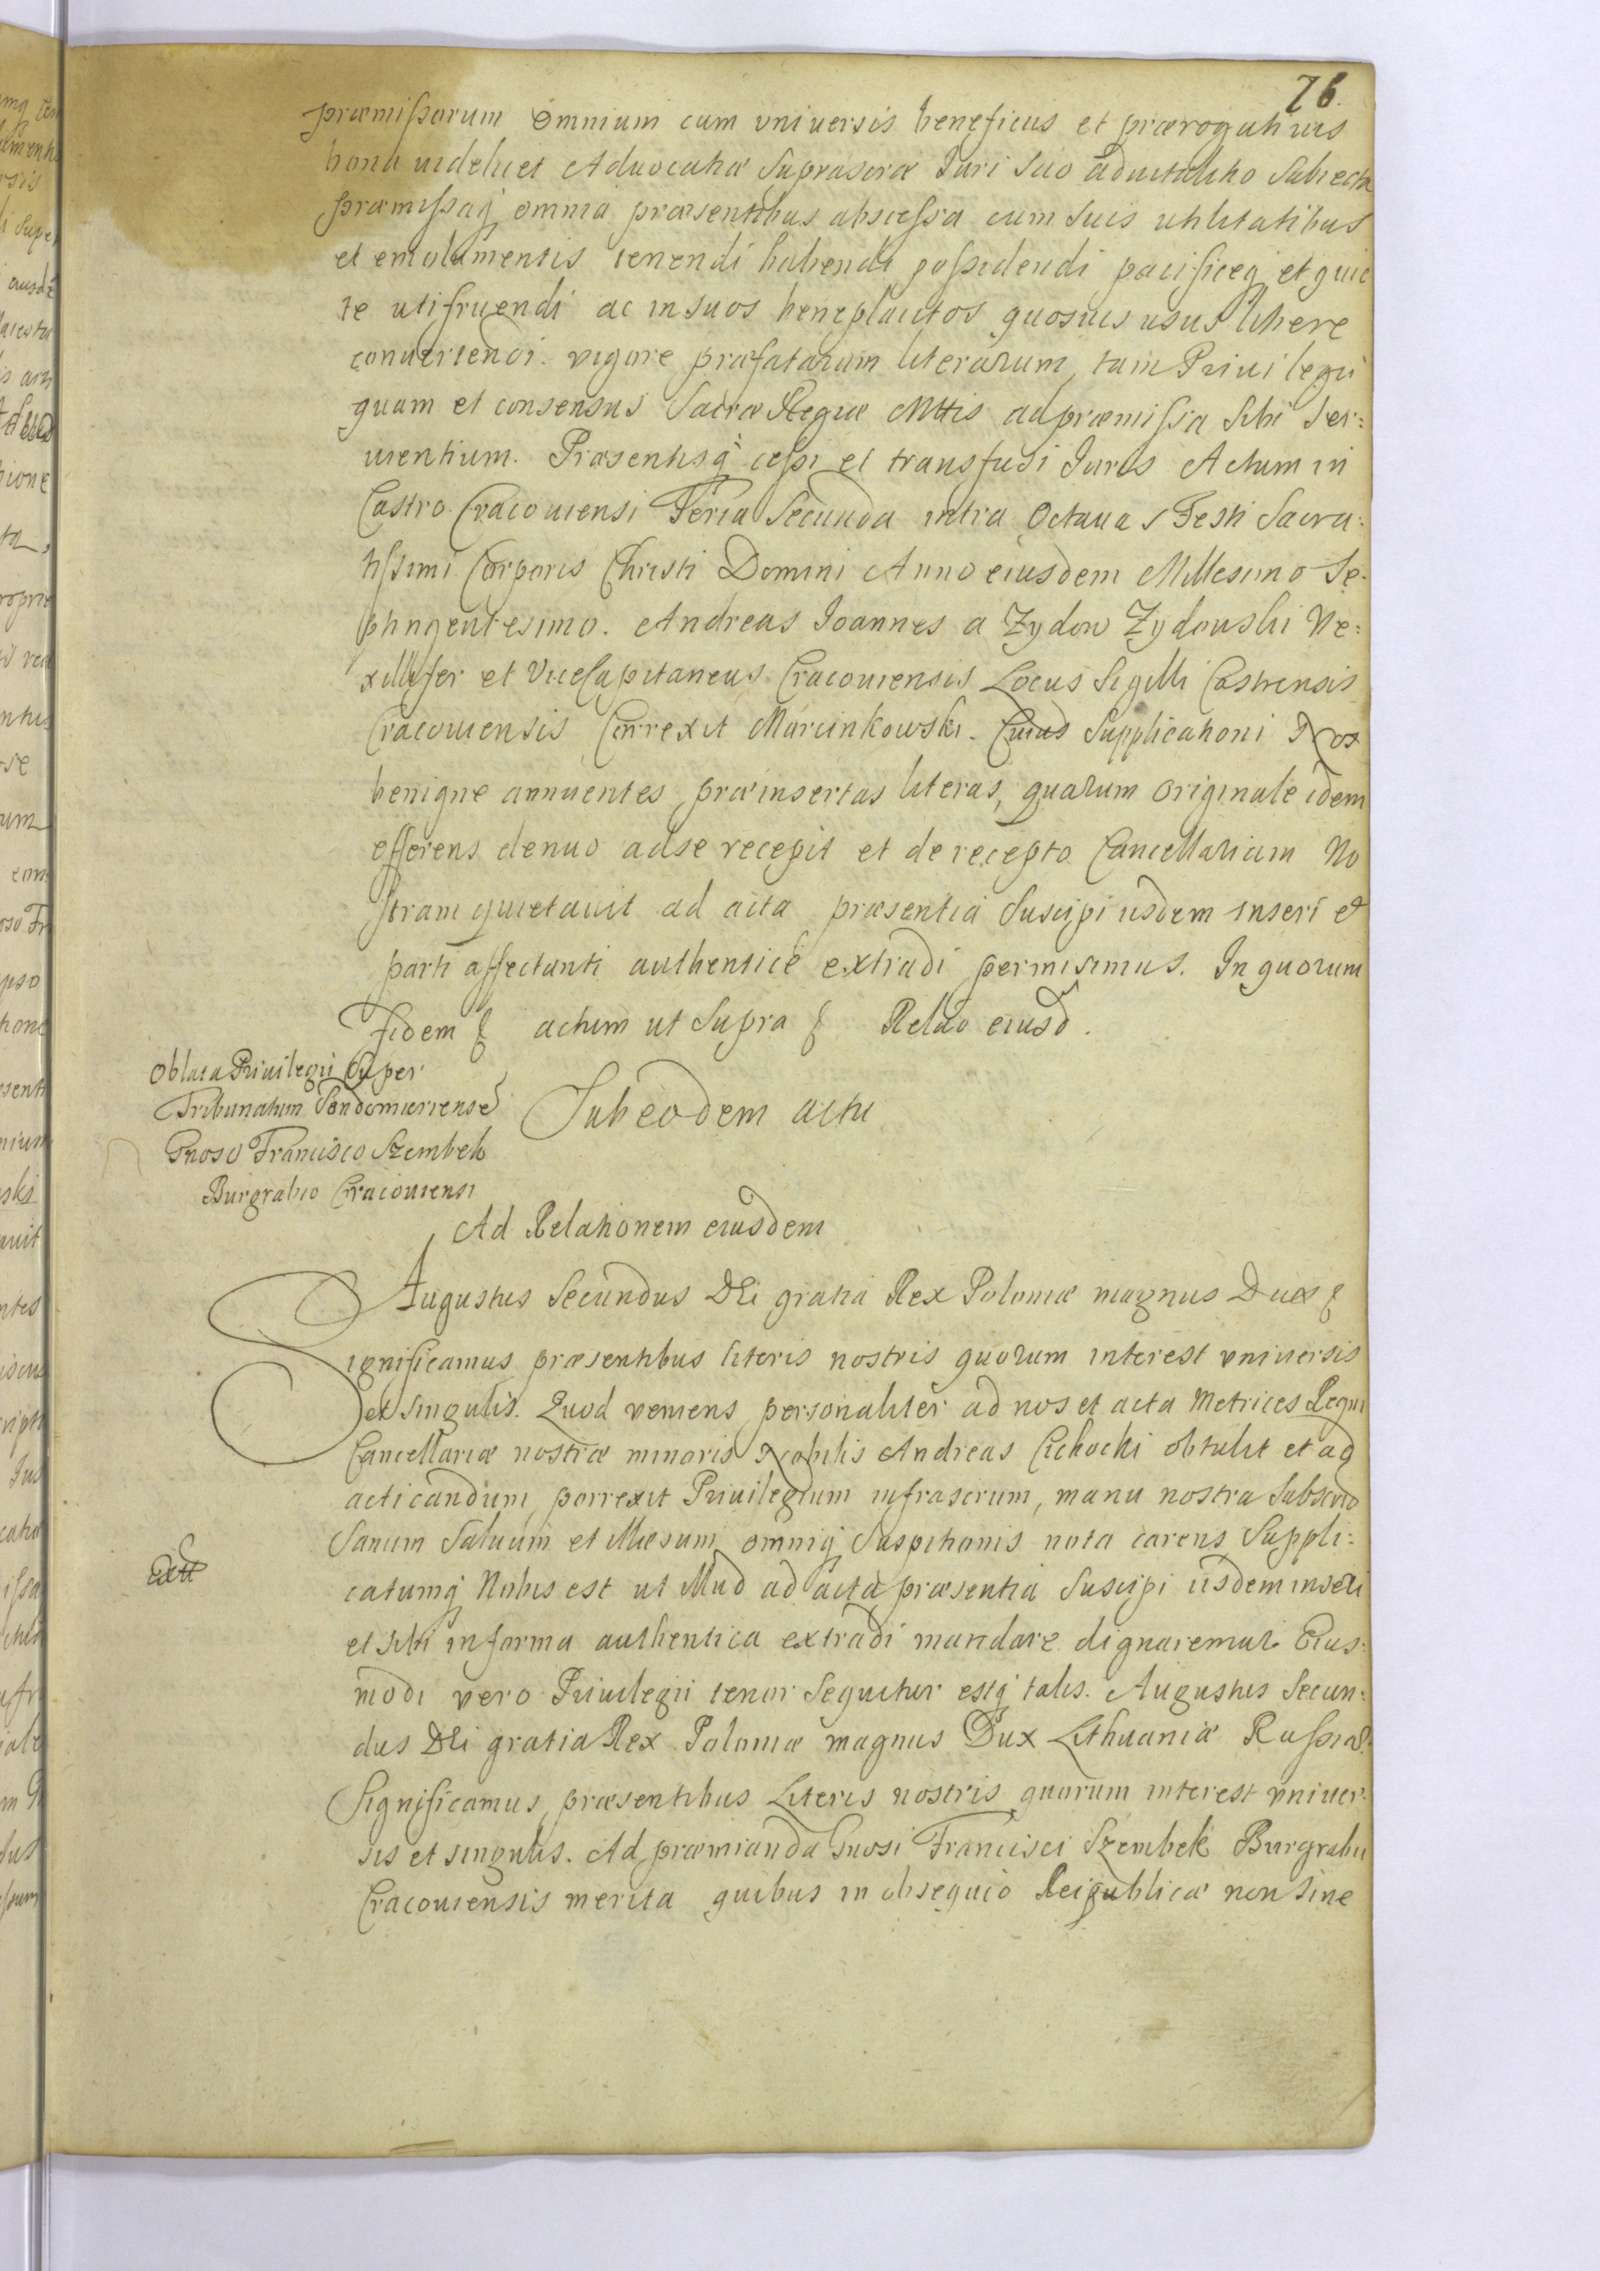 76.
præmissorum omnium cum vniuersis beneficijs et prærogatiuis
bona uidelicet Aduocatiæ Suprascræ Iuri Suo aduitalitio Subiecta
præmissaq omnia præsentibus abscessa cum Suis utilitatibus
et emolumentis tenendi habendi possidendi pacificeq et quie
te utifruendi ac in suos beneplacitos quosuis usus libere
conuertendi. vigore præfatarum literarum, tam Priuilegii
quam et consensus Sacræ Regiæ Mttis ad præmissa Sibi Ser:
uientium. Præsentisq cessi et transfusi Iuris Actum in
Castro Cracouiensi Feria Secunda intra Octauas Festi Sacra:
tissimi Corporis Christi Domini Anno eiusdem Millesimo Se:
ptingentesimo. Andreas Ioannes a Zydow Zydowski Ve:
xillifer et ViceCapitaneus Cracouiensis Locus Sigilli Castrensis
Cracouiensis Correxit Marcinkowski. Cuius Supplicationi Nos
benigne annuentes præinsertas literas, quarum originale idem
efferens denuo ad se recepit et de recepto Cancellariam No
stram quietauit ad acta præsentia Suscipi iisdem inseri et
parti affectanti authentice extradi permisimus. In quorum
Fidem & actum ut Supra & Relao eiusd.
Oblata Priuilegii Super
Tribunatum Sendomiriense
Gnoso Francisco Szembek
Burgrabio Cracouiensi
Sub eodem actu
Ad Relationem eiusdem
Augustus Secundus DEi gratia Rex Poloniæ magnus Dux &
Significamus præsentibus literis nostris quorum interest vniuersis
et singulis. Quod veniens personaliter ad nos et acta Metrices Regni
Cancellariæ nostræ minoris Nobilis Andreas Cichocki obtulit et ad
acticandum porrexit Priuilegium infrascrum, manu nostra Subscrio
Sanum Saluum et illæsum omniq Suspitionis nota carens Suppli:
catumq Nobis est ut illud ad acta præsentia Suscipi iisdem inseri
et sibi in forma authentica extradi mandare dignaremur Eius:
modi vero Priuilegii tenor Sequitur estq talis. Augustus Secun:
dus DEi gratia Rex Poloniæ magnus Dux Lithuaniæ Russiæ &
Significamus præsentibus Literis nostris quorum interest vniuer
sis et singulis. Ad præmianda Gnosi Francisci Szembek Burgrabii
Cracouiensis merita quibus in obsequio Reipublicæ non sine